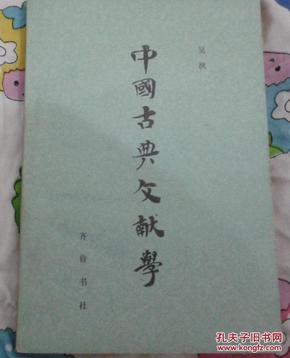 吴枫
中國古典文献學
齐鲁书社
孔夫子旧书网
www.kongfz.com